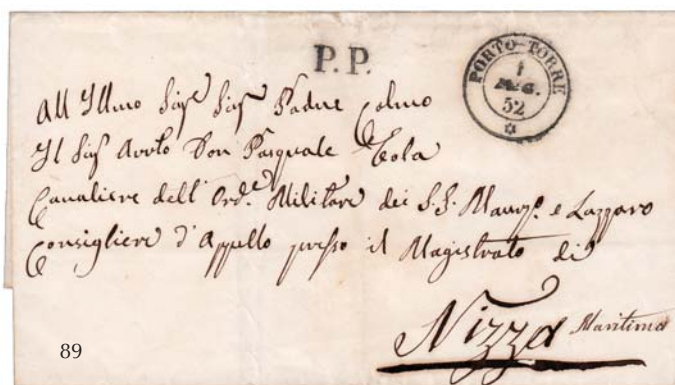 P.P.
PORTO-TORRE
1
52
All Illmo Sigr Sigr Padne Colmo
Il Sigr Avvto Don Pasquale Tola
Cavaliere dell'Orde Militare dei S.S. Maurzo e Lazzaro
Consigliere d'Appello presso il Magistrato di
Nizza Maritima
89